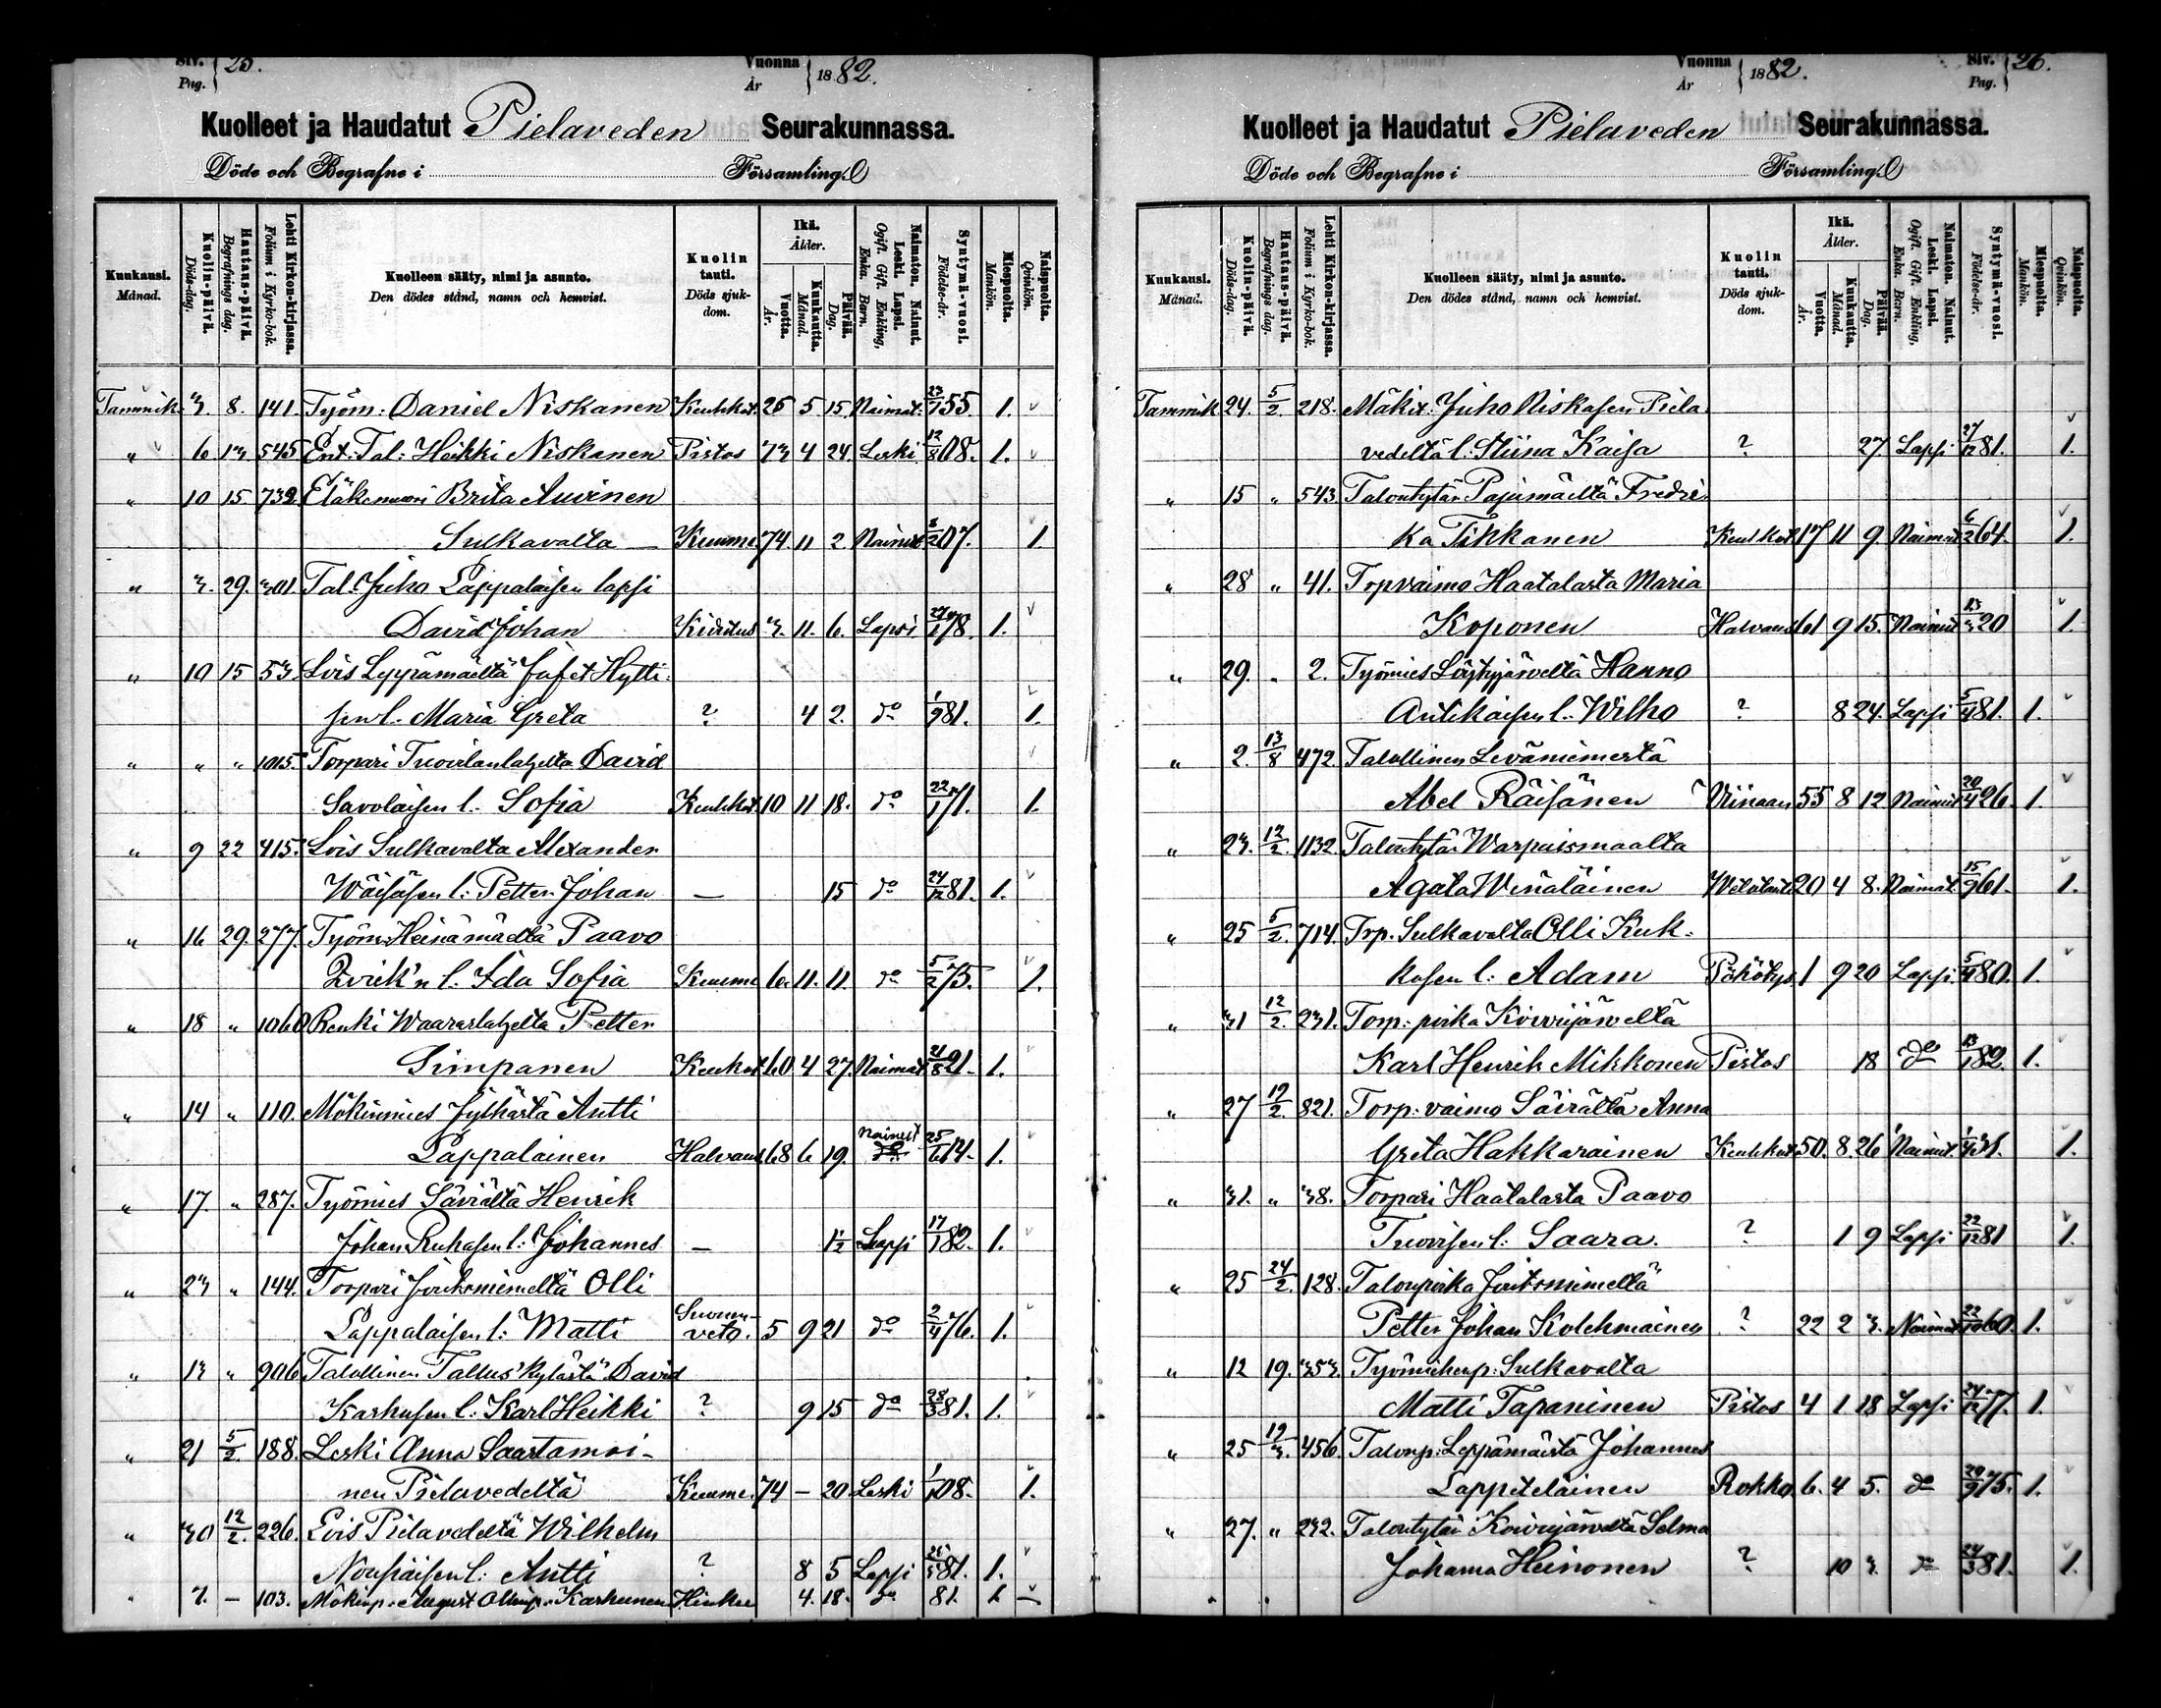 Siv. Pag. 25. Vuonna År 1882.
Kuolleet ja Haudatut Pielaveden Seurakunnassa.
Döde och Begrafne i Församling.
Kuukausi. Månad. Kuolin-päivä. Döds-dag. Hautaus-päivä. Begrafnings dag. Lehti Kirkon-kirjassa. Folium i Kyrko-bok. Kuolleen sääty, nimi ja asunto. Den dödes stånd, namn och hemvist. Kuolin tauti. Döds sjukdom. Ikä. Ålder. Vuotta. År. Kuukautta. Månad. Päivää. Dag. Naimaton. Nainut. Leski. Lapsi. Ogift. Gift. Enkling, Enka. Barn. Syntymä-vuosi. Födelse-år. Miespuolta. Mankön. Naispuolta. Qvinkön.
Tammik. 3. 8. 141. Työm: Daniel Niskanen Keuhkot. 26 5 15. Naimat. 23/7 55. 1.
" 6 13 545 Ent: Tal: Heikki Niskanen Pistos 73 4 24. Leski 12/8 08. 1.
" 10 15 732 Eläkemuori Brita Auvinen
Sulkavalta — Kuume. 74 11 2. Nainut 8/2 07. 1.
" 3. 29. 301. Tal: Juho Lappalaisen lapsi
David Johan Kuristus 3. 11. 6. Lapsi 27/1 78. 1.
" 10 15 53. Lois Leppämäeltä Jafet Hytti:
sen l. Maria Greta ? 4 2. do 1/9 81. 1.
" " " 1015. Torpari Tuovilanlahdelta David
Savolaisen l. Sofia Keuhkot. 10 11 18. do 22/1 71. 1.
" 9 22 415. Lois Sulkavalta Alexander
Wäisäsen l: Petter Johan — 15 do 24/12 81. 1.
" 16 29. 277. Työm: Heinämäeltä Paavo
Zvick'n l. Ida Sofia Kuume 6. 11. 11. do 5/2 75. 1.
" 18 " 1060 Renki Waaraslahdelta Petter
Simpanen Keuhkot 60 4 27. Naimat. 21/8 21. 1.
" 14 " 110. Mökinmies Jylhästä Antti
Lappalainen Halvaus 68 6 19. Nainut 25/6 14. 1.
" 17. " 287. Työmies Säviältä Henrik
Johan Ruhasen l: Johannes — 1/2 Lapsi 17/1 82. 1.
" 23 " 144. Torpari Joutsniemeltä Olli
Lappalaisen l: Matti Suonenveto. 5 9 21 do 2/4 76. 1.
" 13 " 906 Talollinen Tallus'kylästä David
Karhusen l: Karl Heikki ? 9 15 do 28/3 81. 1.
" 21 5/2. 188. Leski Anna Saastamoi-
nen Pielavedeltä Kuume. 74 — 20. Leski 1/1 08. 1.
" 30 12/2. 226. Lois Pielavedeltä Wilhelm
Nousiaisen l: Antti ? 8 5 Lapsi 25/5 81. 1.
" 7. — 103. Mökinp. August Olinp. Karhunen Hinku 4. 18. do 81. 1. —
Vuonna År 1882. Siv. Pag. 26.
Kuolleet ja Haudatut Pielaveden Seurakunnassa.
Döde och Begrafne i Församling.
Kuukausi. Månad. Kuolin-päivä. Döds-dag. Hautaus-päivä. Begrafnings dag. Lehti Kirkon-kirjassa. Folium i Kyrko-bok. Kuolleen sääty, nimi ja asunto. Den dödes stånd, namn och hemvist. Kuolin tauti. Döds sjukdom. Ikä. Ålder. Vuotta. År. Kuukautta. Månad. Päivää. Dag. Naimaton. Nainut. Leski. Lapsi. Ogift. Gift. Enkling, Enka. Barn. Syntymä-vuosi. Födelse-år. Miespuolta. Mankön. Naispuolta. Qvinkön.
Tammik 24. 5/2. 218. Mäkit. Juho Niskasen Piela
vedeltä l: Stiina Kaisa ? 27. Lapsi 27/12 81. 1.
" 15 " 543. Talontytär Pajumäeltä Fredri
ka Tikkanen Keuhkot 17 11 9. Naimat. 6/2 64. 1.
" 28 " 41. Torpvaimo Haatalasta Maria
Koponen Halvaus 61 9 15. Nainut 13/3 20 1.
" 29. " 2. Työmies Löytynjärveltä Hanno
Antikaisen l. Wilho ? 8 24. Lapsi 5/4 81. 1.
" 2. 13/8 472. Talollinen Leväniemestä
Abel Räisänen Viinaan 55 8 12 Nainut 20/4 26. 1.
" 23. 12/2. 1132. Talontytär Warpaismaalta
Agata Wenäläinen Wetotauti 20 4 8. Naimat. 15/9 61. 1.
" 25 5/2. 714. Trp. Sulkavalta Olli Kuk-
kosen l: Adam Pöhötys. 1 9 20 Lapsi. 5/4 80. 1.
" 31 12/2. 231. Torp: poika Koivujärveltä
Karl Henrik Mikkonen Pistos 18 do 13/1 82. 1.
" 27 19/2. 821. Torp: vaimo Säviältä Anna
Greta Hakkarainen Keuhkot 50. 8. 26 Nainut. 1/4 31. 1.
" 31. " 38. Torpari Haatalasta Paavo
Tuovisen l: Saara. ? 1 9 Lapsi 22/12 81 1.
" 25 24/2. 128. Talonpoika Joutsniemeltä
Petter Johan Kolehmainen ? 22 2 3. Naimat 22/10 60. 1.
" 12 19. 353. Työmiehenp: Sulkavalta
Matti Tapaninen Pistos 4 1 18 Lapsi 24/12 77. 1.
" 25 19/3. 456. Talonp: Leppämäestä Johannes
Lappeteläinen Rokko 6. 4 5. do 20/9 75. 1.
" 27. " 232. Talontytär Koivujärveltä Selma
Johanna Heinonen ? 10 3. do 24/3 81. 1.